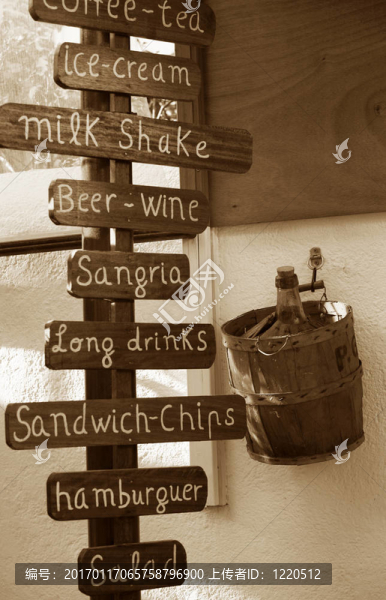 coffee-tea
ice-cream
milk Shake
Beer-wine
Sangria
Long drinks
Sandwich-Chips
hamburguer
Salad
编号:20170117065758796900 ID:1220512 上传者ID:1220512